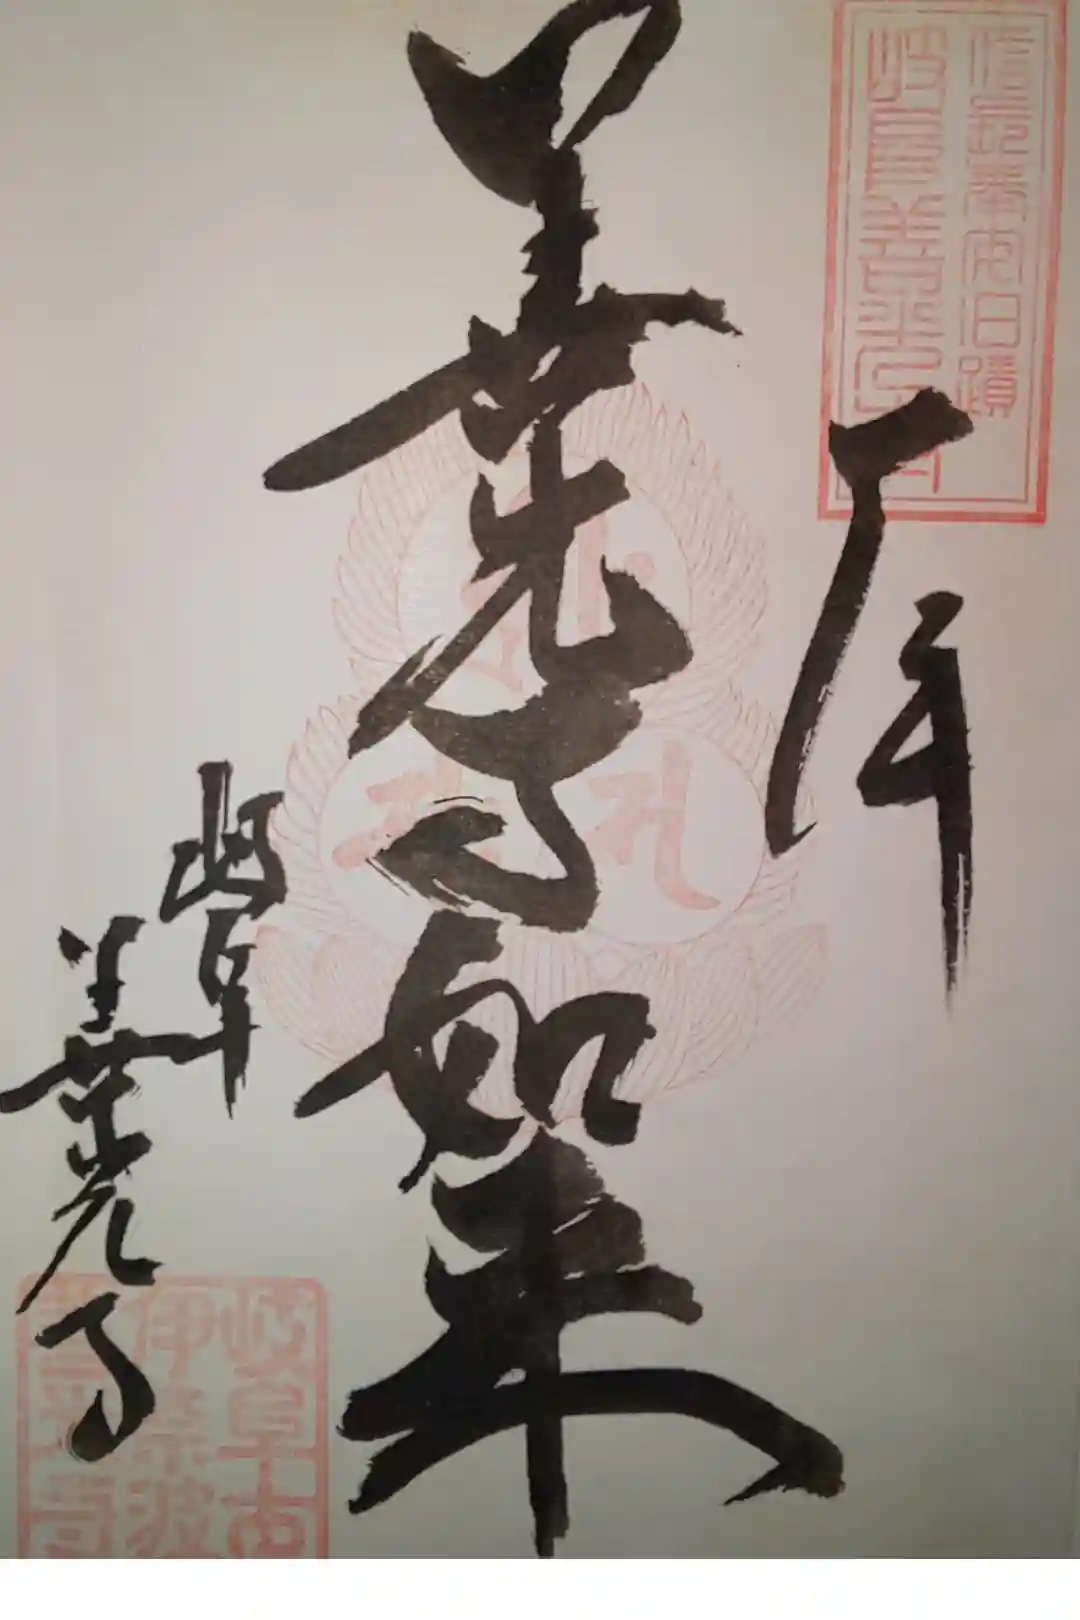 信長奉安旧蹟
岐阜善光寺
奉拝
善光寺如来
岐阜
善光寺
岐阜市
伊奈波
善光寺